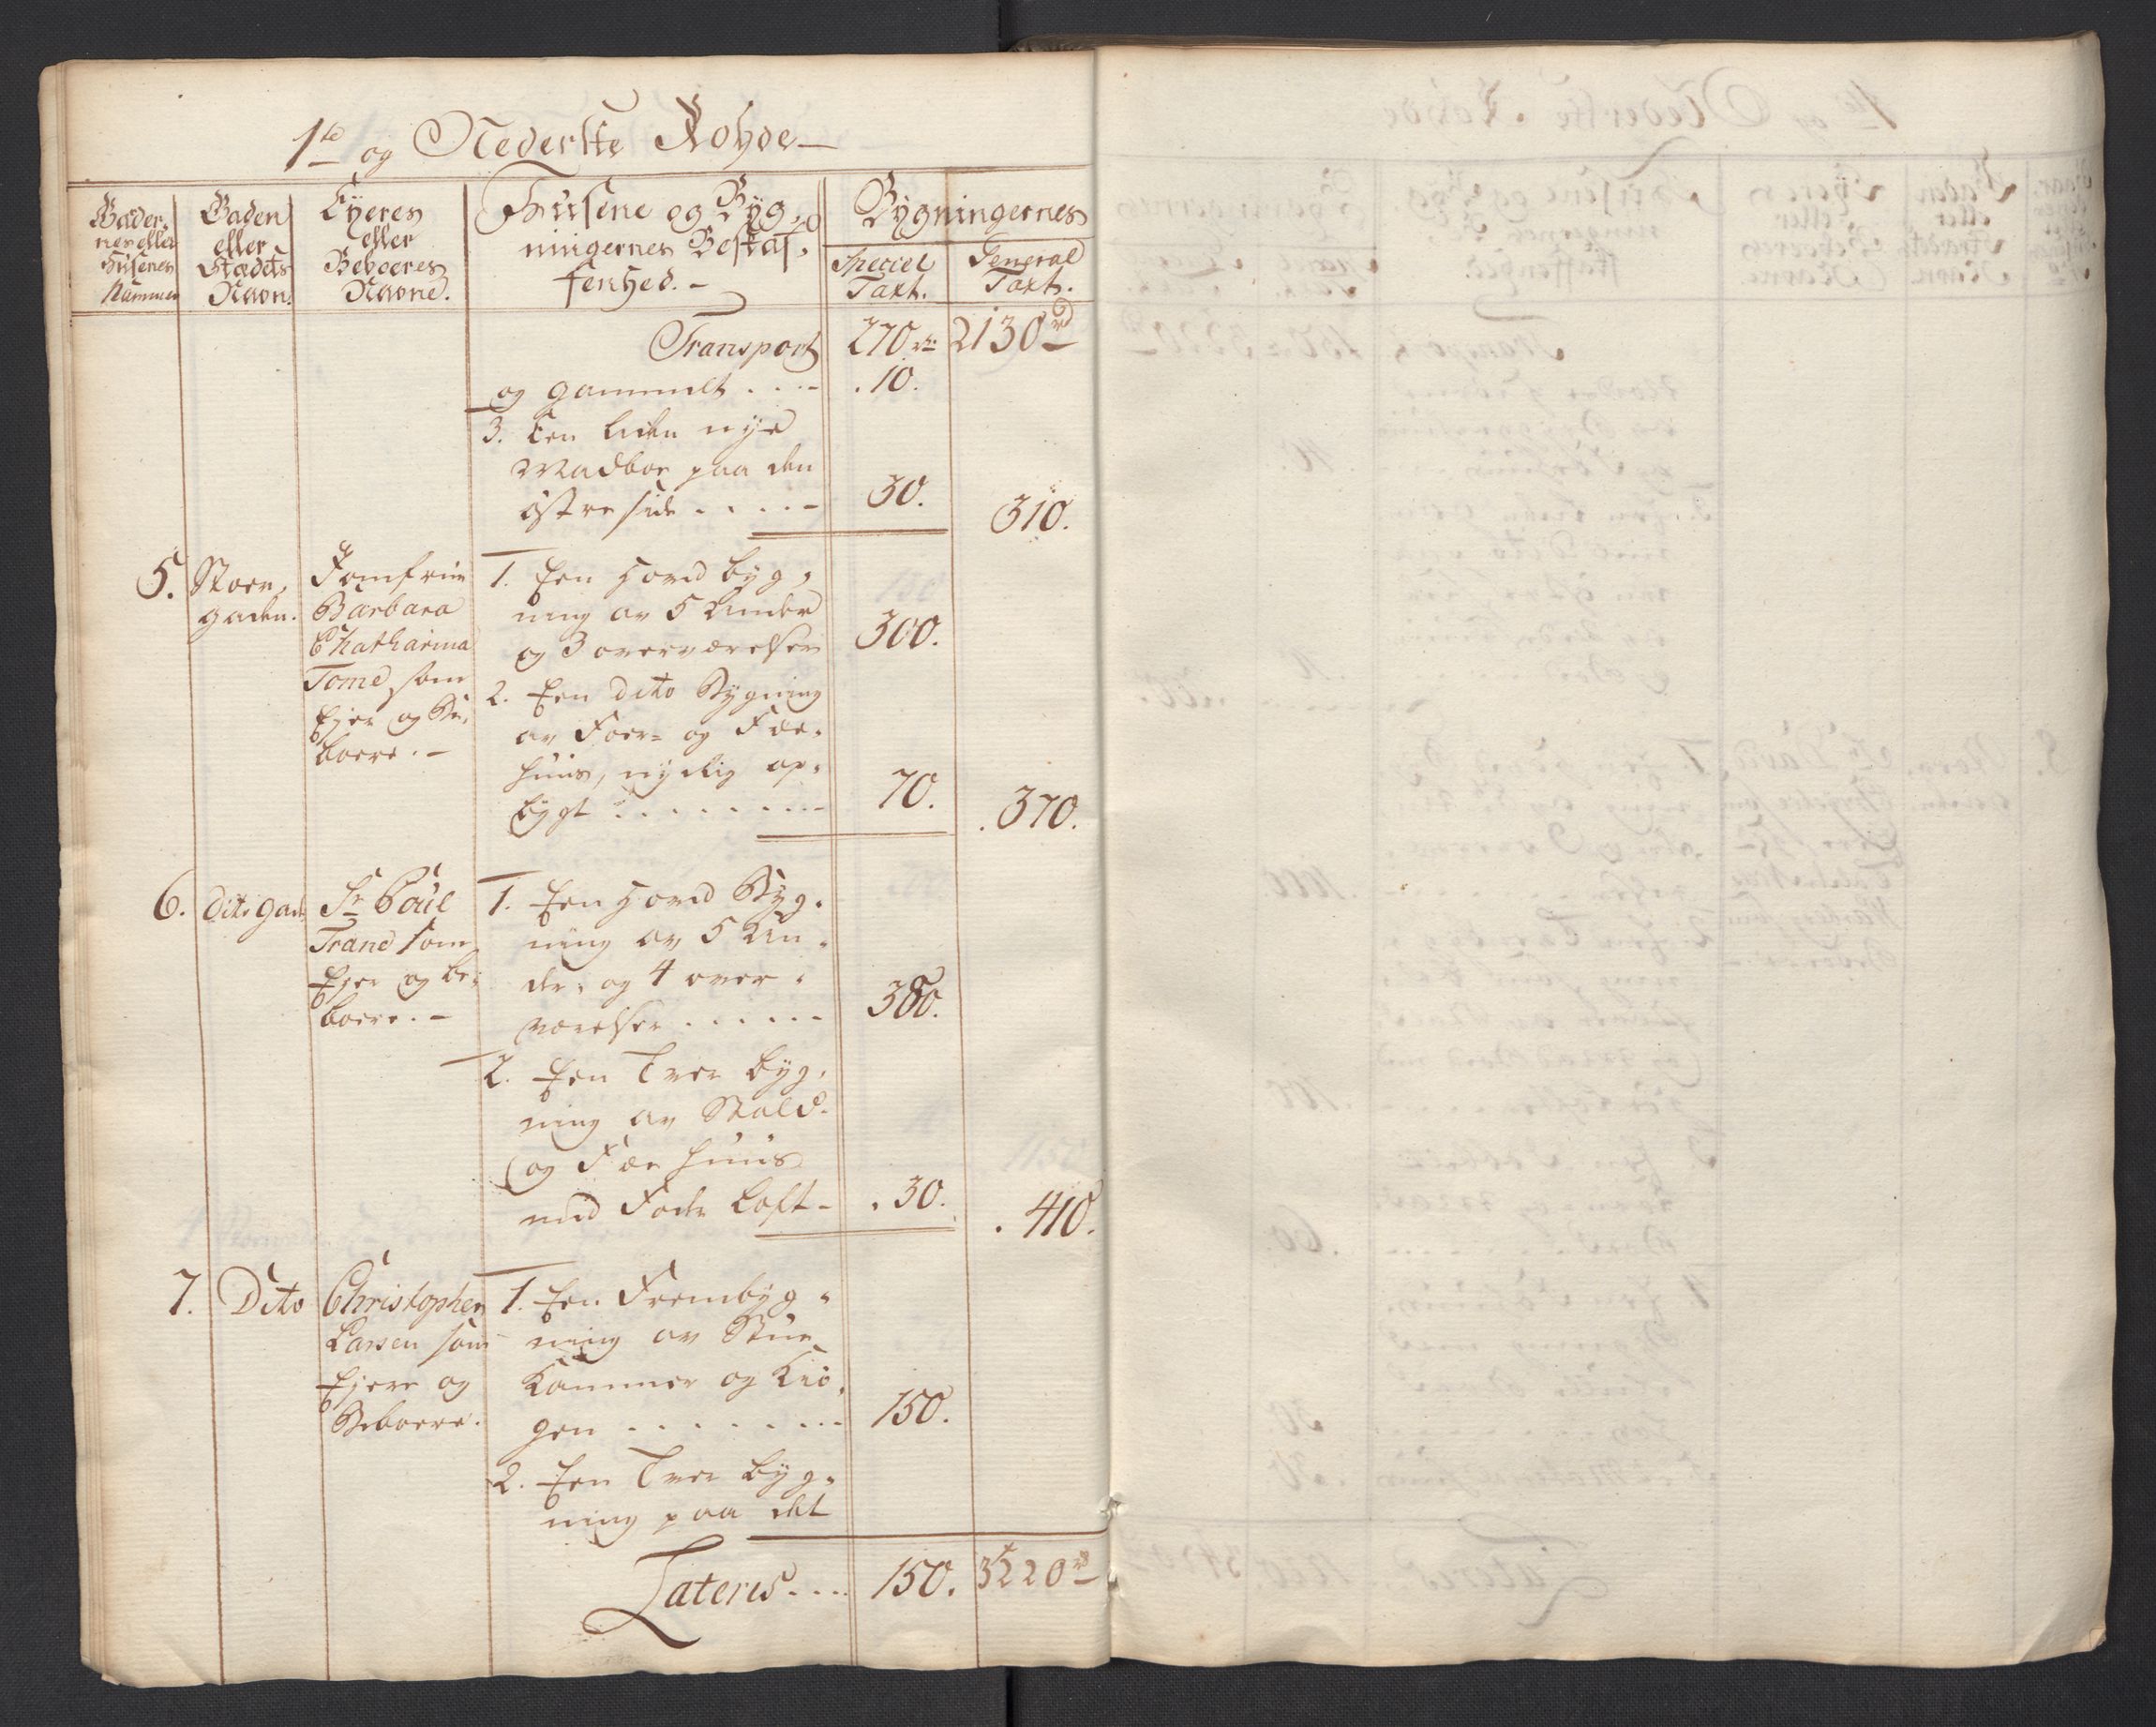 1te og Nederste Rohde
Gader,
nes eller
Husenes
Nummer
Gaden
eller
Stædets
Navn.
Eyeres
eller
Beboeres
Navne.
Husene og Byg,
ningernes Beskaf,
fenhed. -
Bygningernes
Speciel
Taxt.
General
Taxt.
Transport 270 rd 2130 rd
og gammelt . . . - . 10.
3. Een liden nye
Madboe paa den
østre side . . . . - 30. 310.
5. Stoer,
gaden.
Jomfrue
Barbara
Chatharina
Tome, som
Ejer og Be,
boere. -
1. Een Hoved byg,
ning av 5 Under
og 3 overværelser 300.
2. Een dito Bygning
av Foer= og Fæe,
huus, nylig op,
bygt . . . . . . . - 70. . 370.
6. dito gade
Sr Poul
Trane som
Ejer og be,
boere. -
1. Een Hoved Byg,
ning av 5 Un,
der, og 4 over,
værelser . . . . . - 380.
2. Een Tver byg,
ning av Stald
og Fæe huus
med Foder loft - . 30. . 410.
7. Dito
Christopher
Larsen som
Ejere og
Beboere.
1. Een Frembyg,
ning av Stue
Kammer og Kiø,
gen . . . . . . . - 150.
2. Een Tver byg,
ning paa det
Lateris . . . 150. 3220 rd